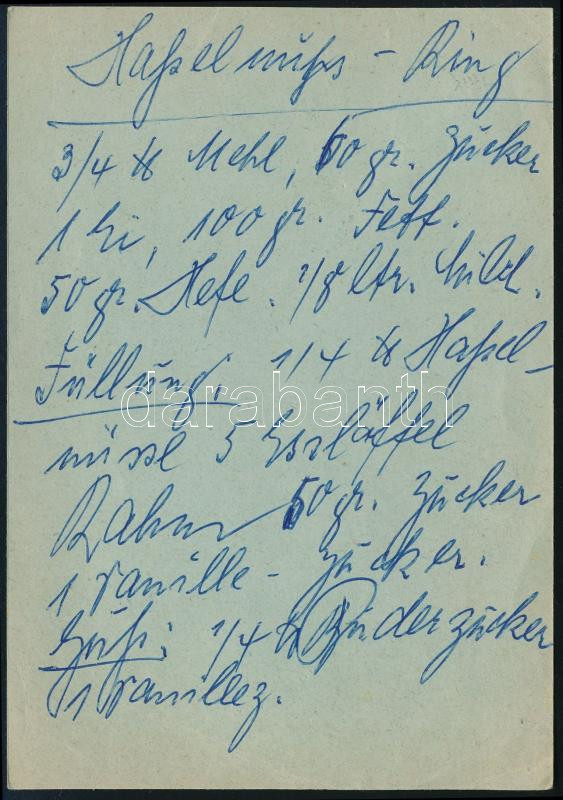 Haßelnuhs - Ring
3/4 ℔ Mehl, 60 gr. Zucker
1 Ei, 100 gr. Fett.
50 gr. Hefe. 1/8 ltr. Milch.
Füllung. 1/4 ℔ Haßel-
nüsse 5 Esslöffel
Rahm 60 gr. Zucker
1 Vanille - Zucker.
Guß: 1/4 ℔ Puderzucker
1 Vanillez.
darabanth